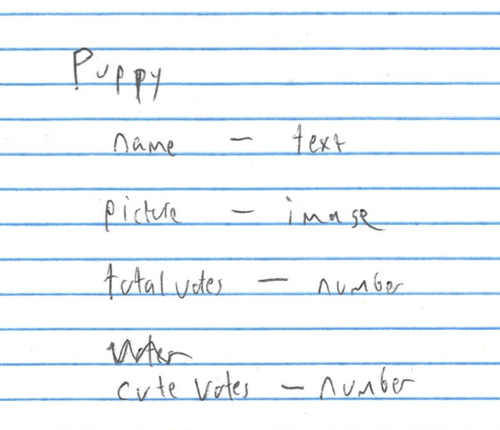 Puppy
name — text
picture — image
total votes — number
cute votes — number